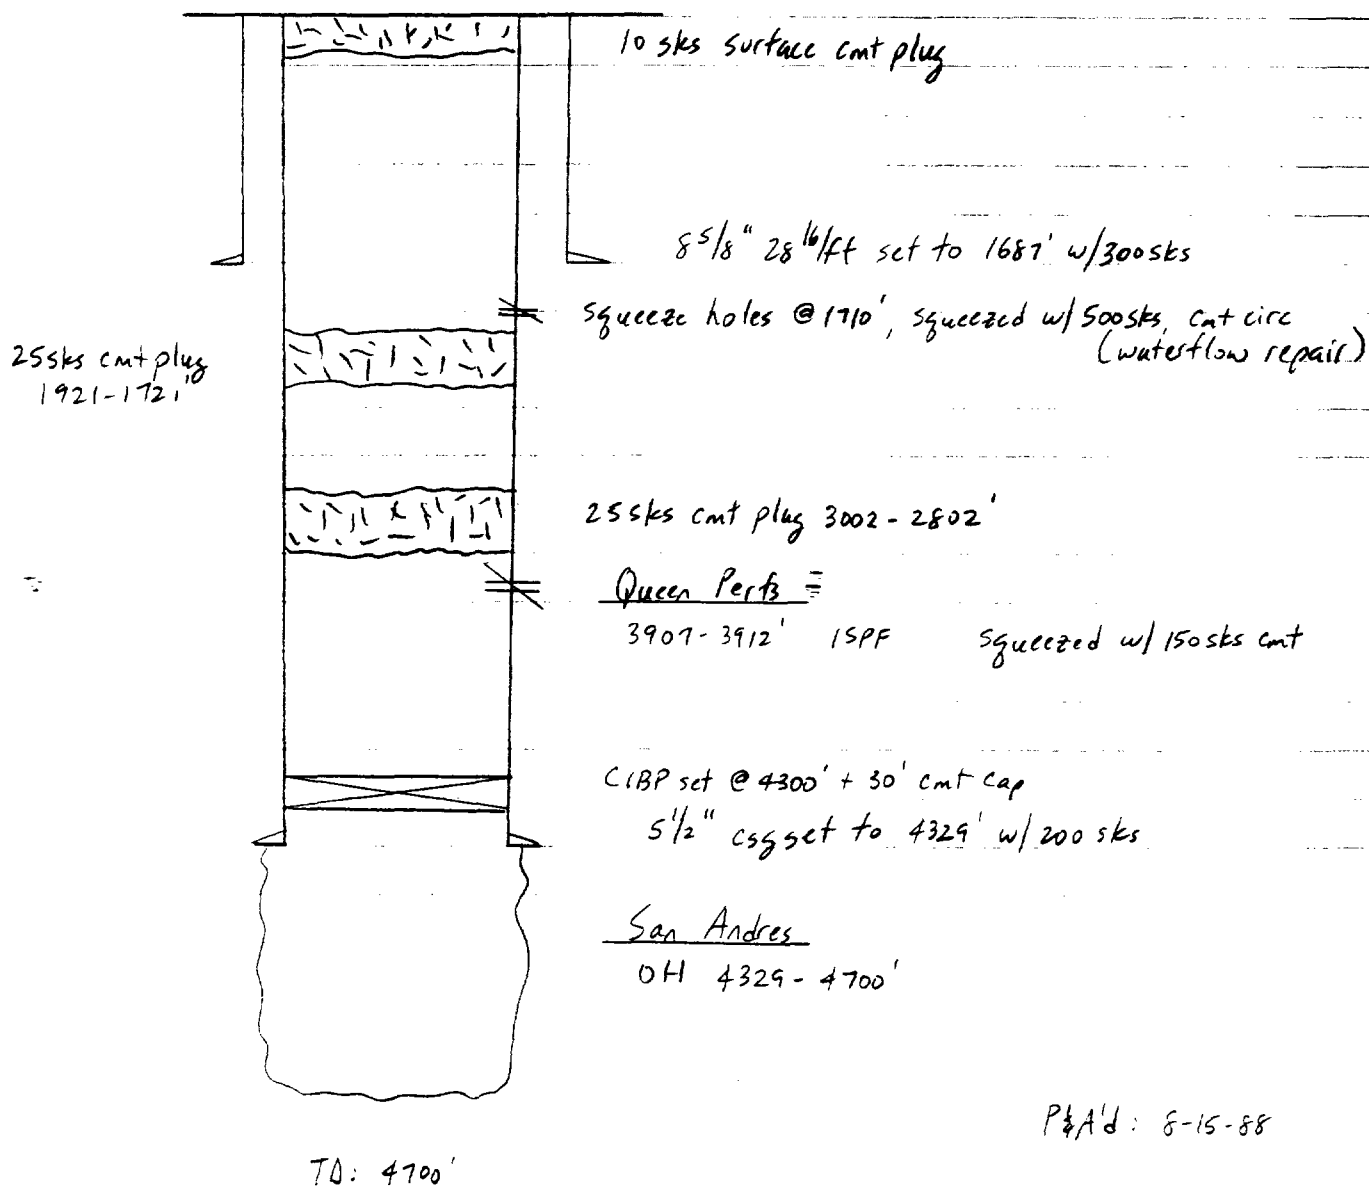 10 sks surface cmt plug
8 5/8" 28 lb/ft set to 1687' w/300sks
squeeze holes @ 1710', squeezed w/ 500sks, cmt circ
(waterflow repair)
25sks cmt plug
1921-1721'
25sks cmt plug 3002-2802'
Queen Perfs
3907-3912' 1SPF squeezed w/ 150sks cmt
CIBP set @ 4300' + 30' cmt cap
5 1/2" csg set to 4329' w/ 200 sks
San Andres
OH 4329-4700'
P&A'd: 8-15-88
TD: 4700'